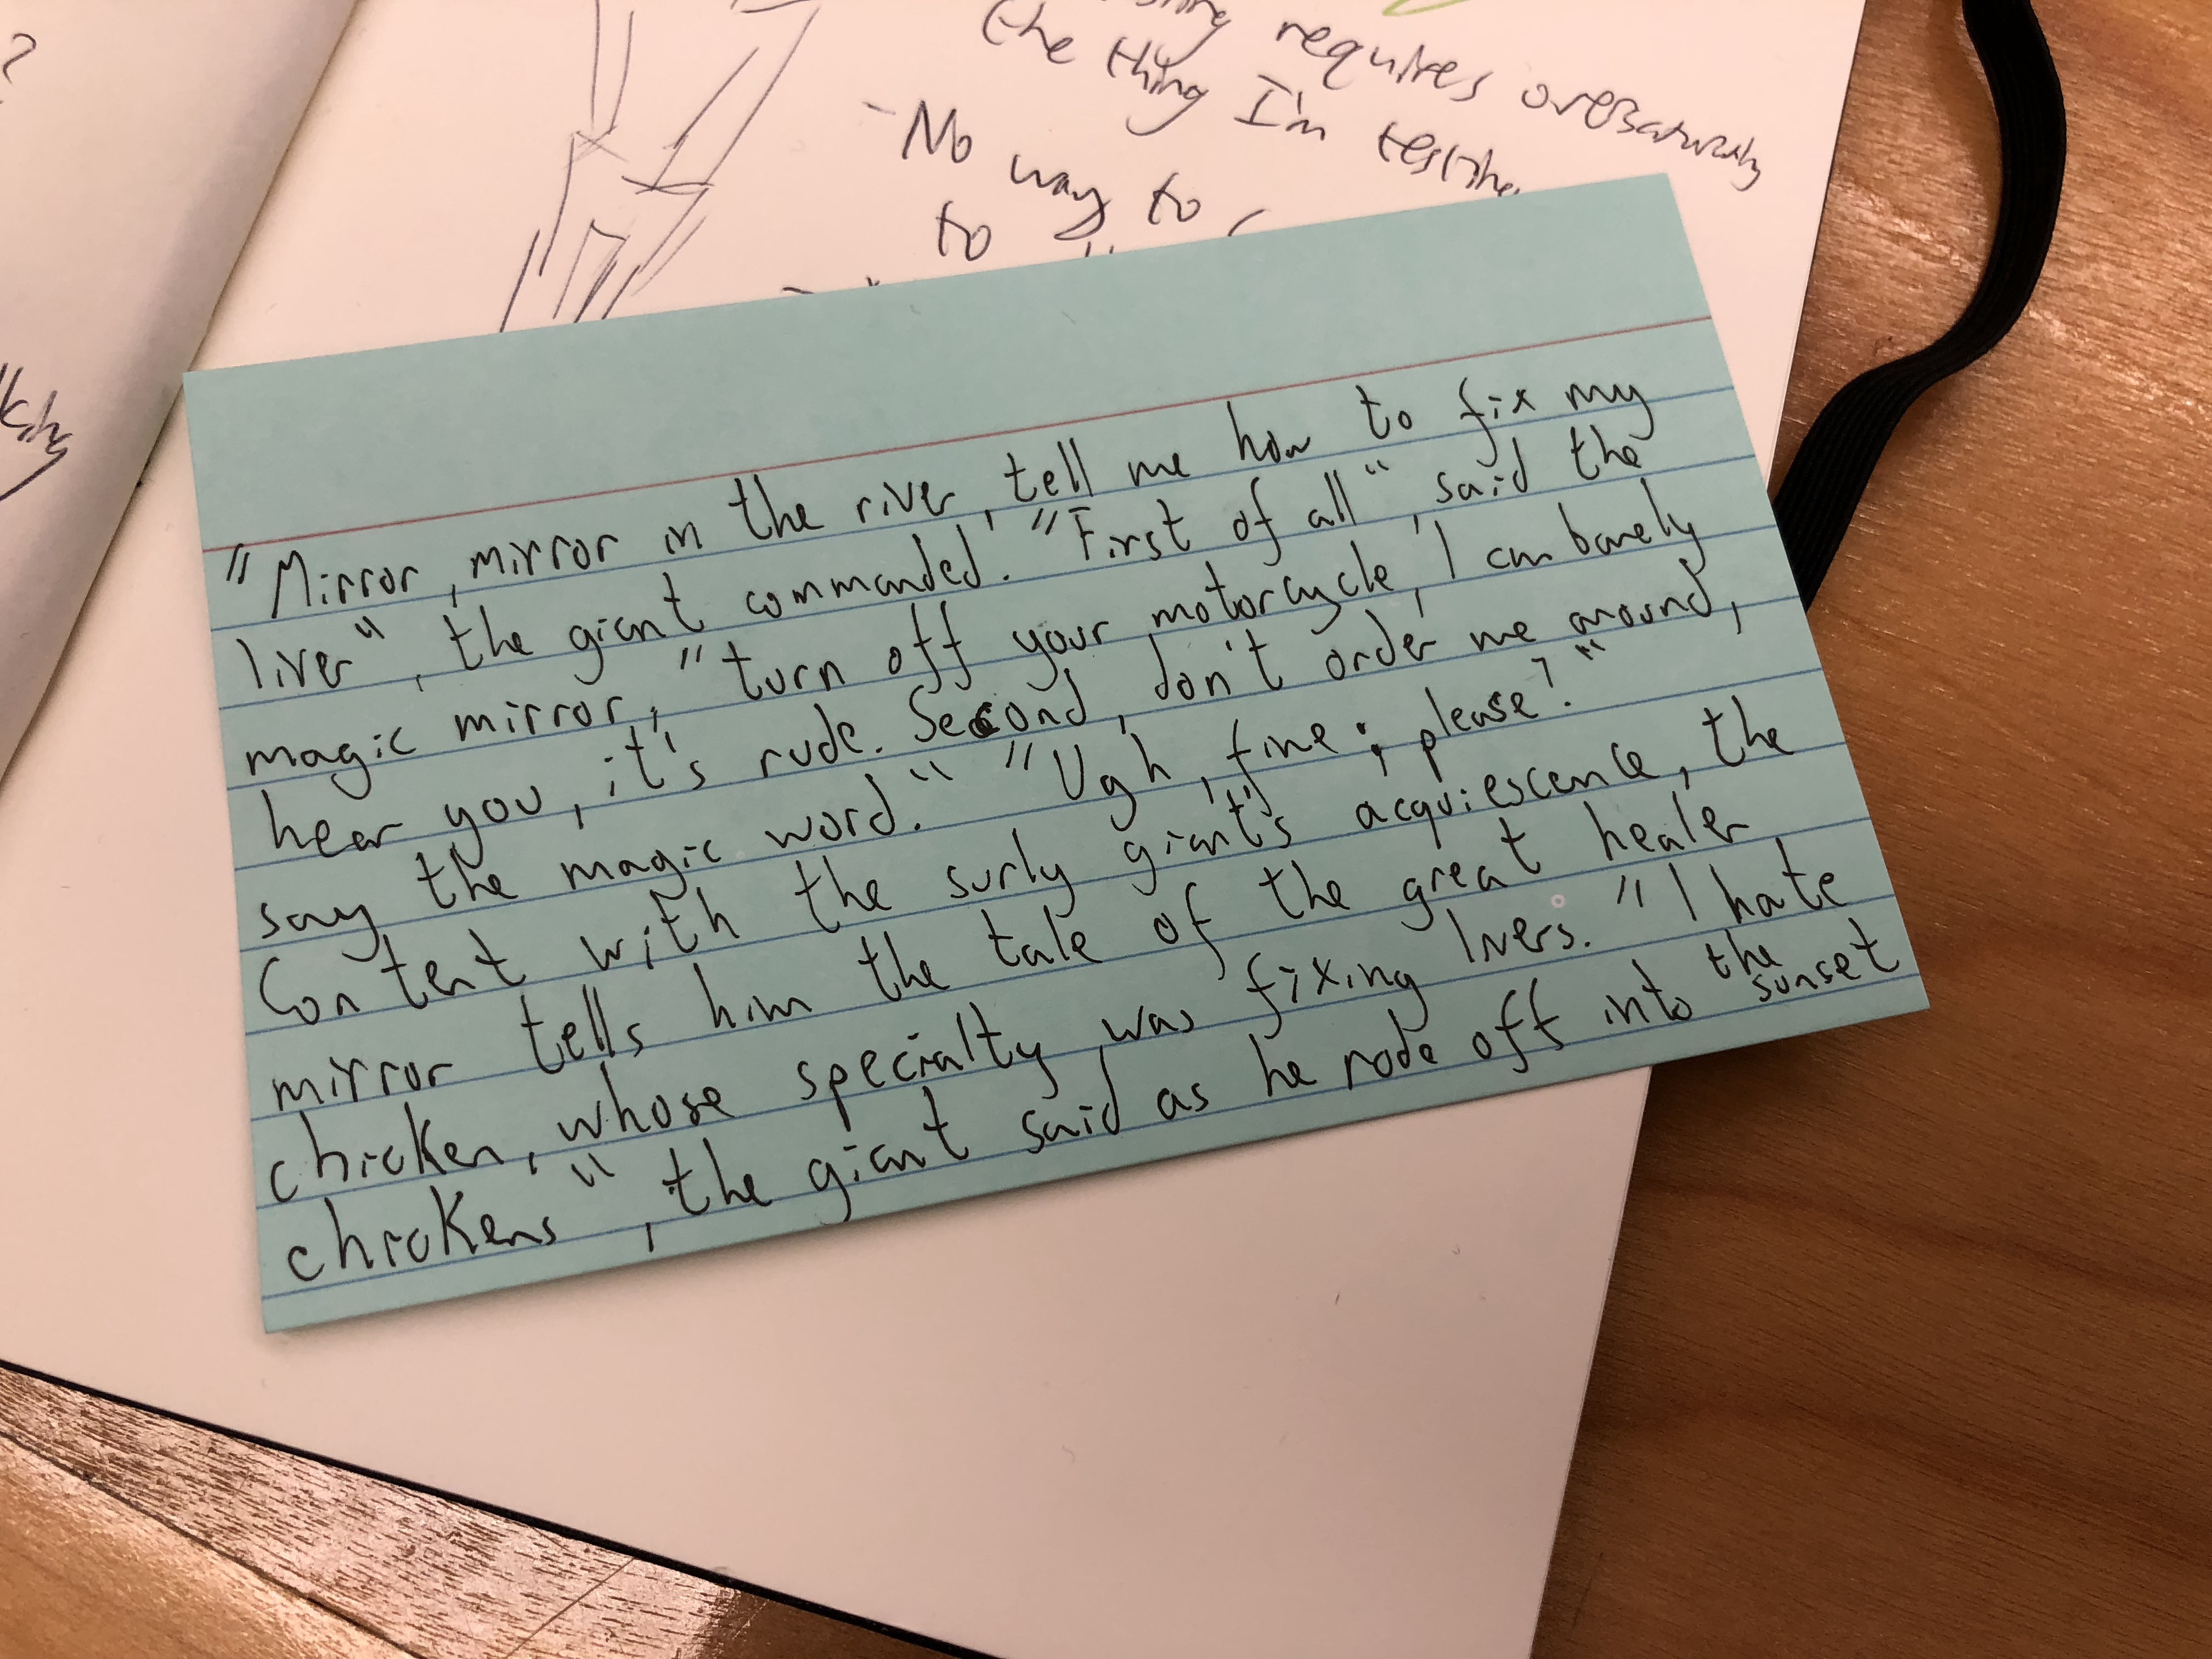 ?
requires oversaturating
the thing I'm testing
- No way to
to
"Mirror, mirror in the river, tell me how to fix my
liver", the giant commanded. "First of all", said the
magic mirror, "turn off your motorcycle, I can barely
hear you, it's rude. Second, don't order me around,
say the magic word." "Ugh, fine; please?"
Content with the surly giant's acquiescence, the
mirror tells him the tale of the great healer
chicken, whose specialty was fixing livers. "I hate
chickens", the giant said as he rode off into the
sunset